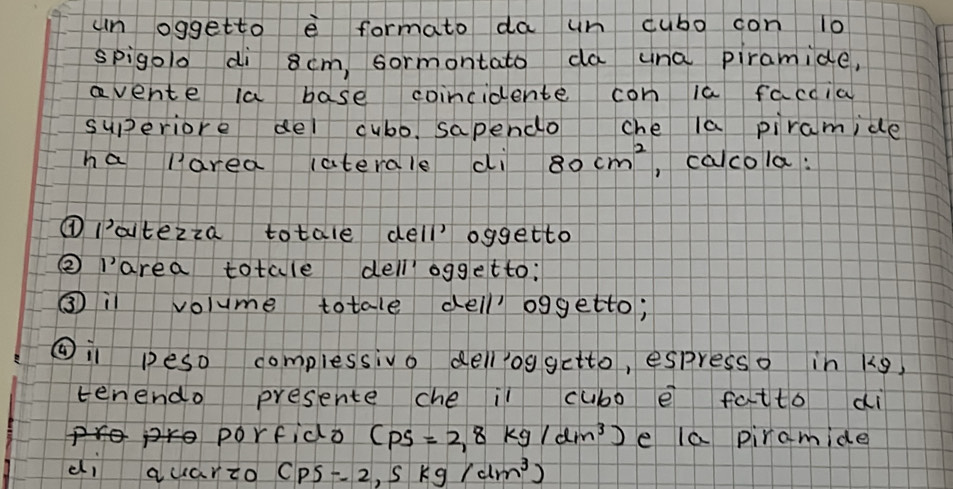 un oggetto è formato da un cubo con lo
spigolo di 8cm, sormontato da una piramide,
avente la base coincidente con la faccia
superiore del cubo. sapendo che la piramide
ha l'area laterale di 80 cm², calcola:
① l'altezza totale dell' oggetto
② l'area totale dell' oggetto;
③ il volume totale dell' oggetto;
④ il peso complessivo dell'oggetto, espresso in kg,
tenendo presente che il cubo è fatto di
pro pro porfido (ps = 2,8 kg/dm³) e la piramide
di quarzo (ps = 2,5 kg/dm³)